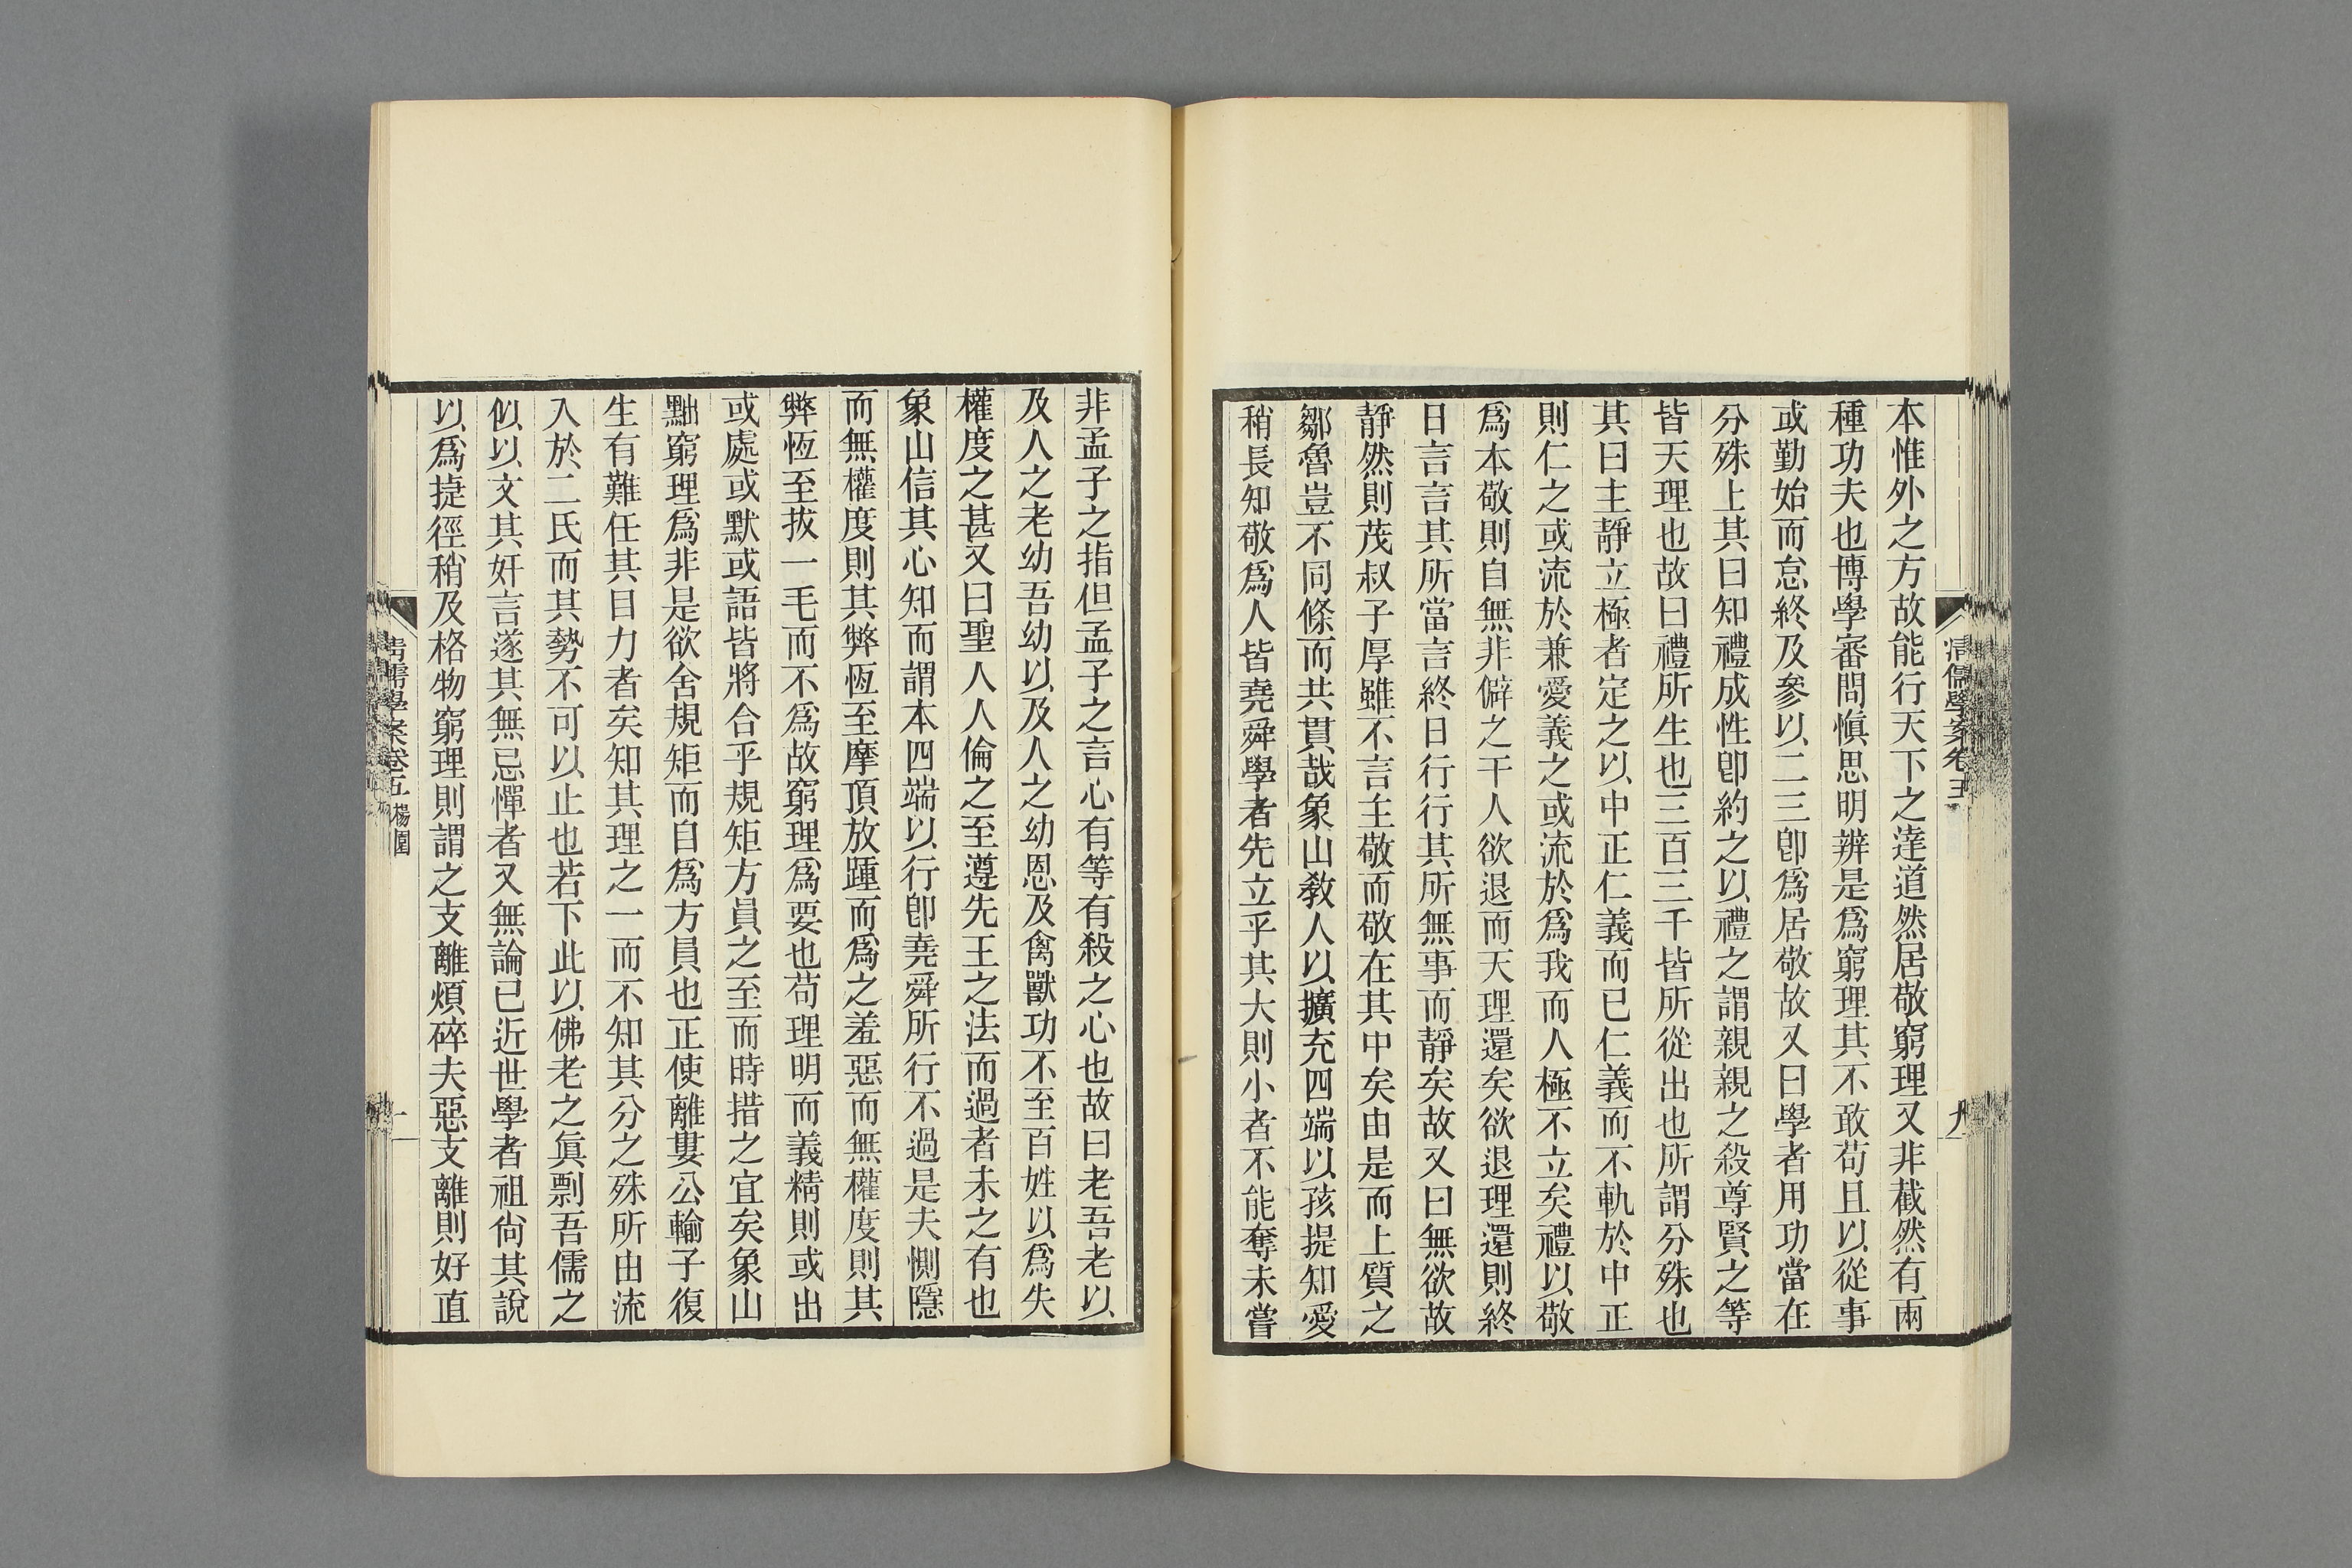 清儒學案卷五
九
本惟外之方故能行天下之達道然居敬窮理又非截然有兩
種功夫也博學審問愼思明辨是爲窮理其不敢苟且以從事
或勤始而怠終及參以二三卽爲居敬故又曰學者用功當在
分殊上其曰知禮成性卽約之以禮之謂親親之殺尊賢之等
皆天理也故曰禮所生也三百三千皆所從出也所謂分殊也
其曰主靜立極者定之以中正仁義而已仁義而不軌於中正
則仁之或流於兼愛義之或流於爲我而人極不立矣禮以敬
爲本敬則自無非僻之干人欲退而天理還矣欲退理還則終
日言言其所當言終日行行其所無事而靜矣故又曰無欲故
靜然則茂叔子厚雖不言主敬而敬在其中矣由是而上質之
鄒魯豈不同條而共貫哉象山敎人以擴充四端以孩提知愛
稍長知敬爲人皆堯舜學者先立乎其大則小者不能奪未嘗
非孟子之指但孟子之言心有等有殺之心也故曰老吾老以
及人之老幼吾幼以及人之幼恩及禽獸功不至百姓以爲失
權度之甚又曰聖人人倫之至遵先王之法而過者未之有也
象山信其心知而謂本四端以行卽堯舜所行不過是夫惻隱
而無權度則其弊恆至摩頂放踵而爲之羞惡而無權度則其
弊恆至拔一毛而不爲故窮理爲要也苟理明而義精則或出
或處或默或語皆將合乎規矩方員之至而時措之宜矣象山
黜窮理爲非是欲舍規矩而自爲方員也正使離婁公輸子復
生有難任其目力者矣知其理之一而不知其分之殊所由流
入於二氏而其勢不可以止也若下此以佛老之眞剽吾儒之
似以文其奸言遂其無忌憚者又無論已近世學者祖尙其說
以爲捷徑稍及格物窮理則謂之支離煩碎夫惡支離則好直
清儒學案卷五 楊園